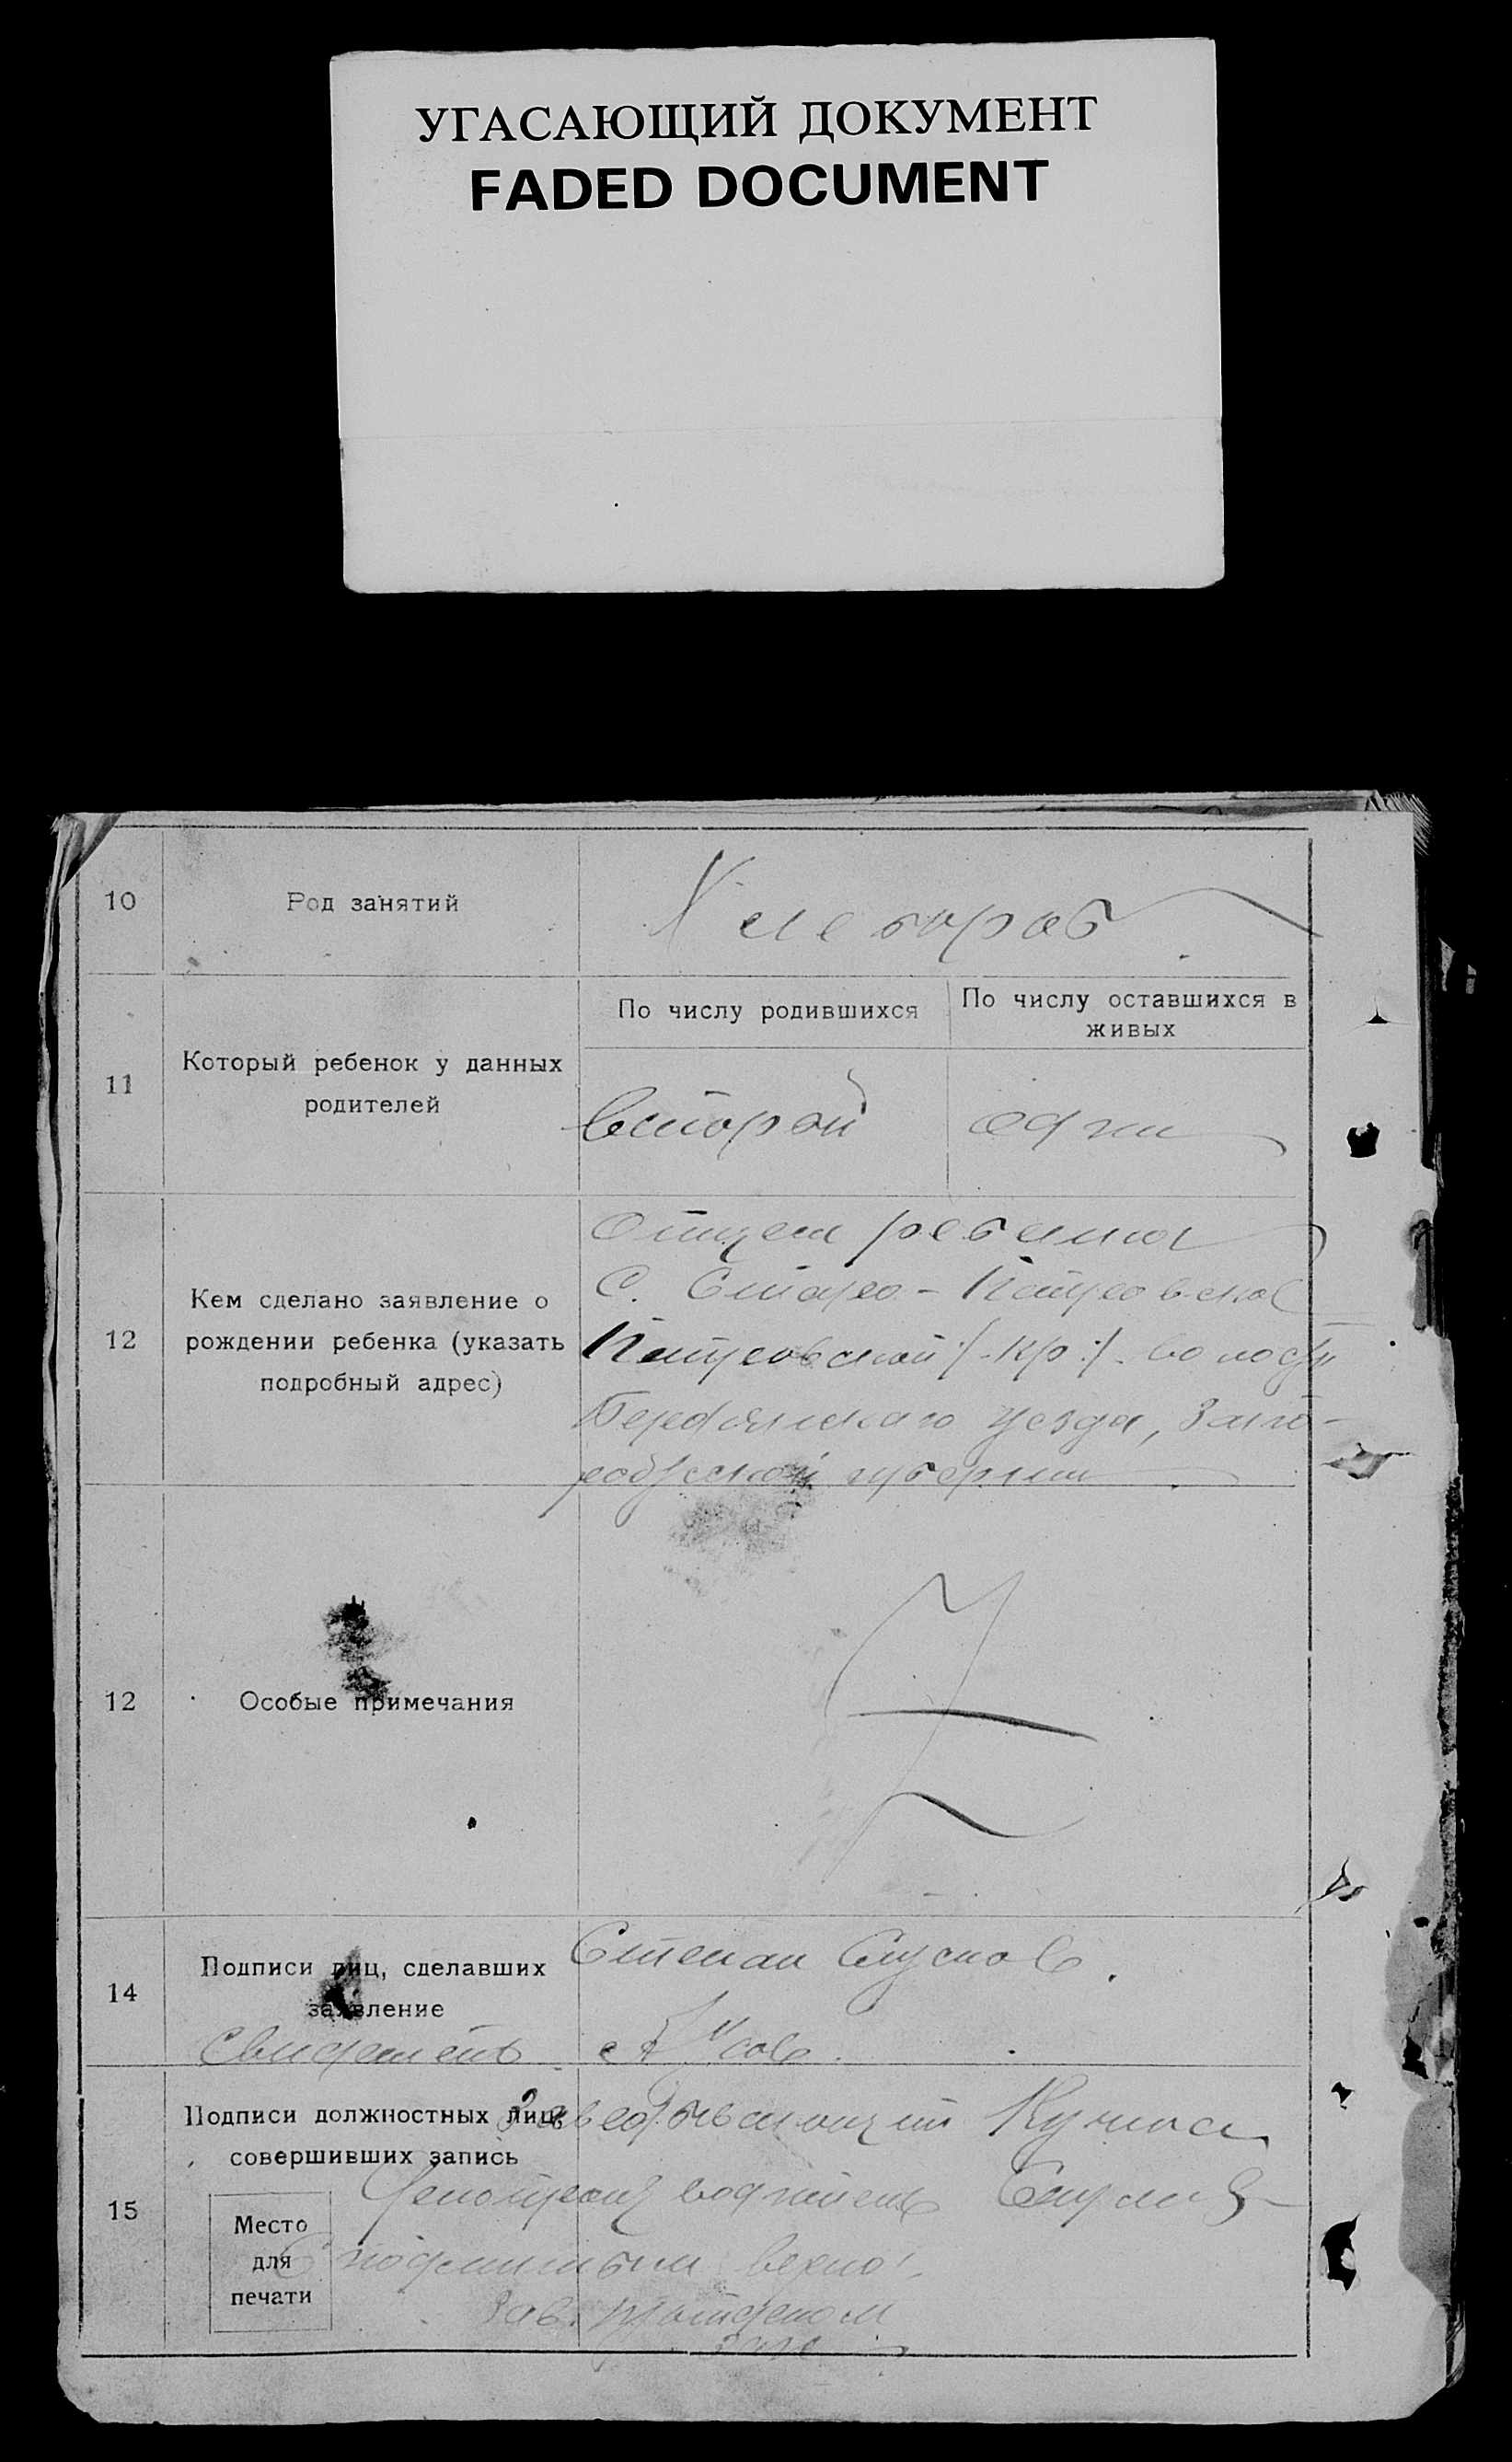 УГАСАЮЩИЙ ДОКУМЕНТ
FADED DOCUMENT
10
Род занятий
Хлебороб
11
Который ребенок у данных
родителей
По числу родившихся
По числу оставшихся в
живых
второй
один
12
Кем сделано заявление о
рождении ребенка (указать
подробный адрес)
Отцем ребенка
С. Старо-
волости
Бердянского уезда, Запо-
рожской губернии
12
Особые примечания
14
Подписи лиц, сделавших
заявление
Степан
Свидетель
Усов.
15
Подписи должностных лиц,
совершивших запись
Заведывающий
Делопроизводитель
Место
для
печати
С подлинным верно:
Зав.